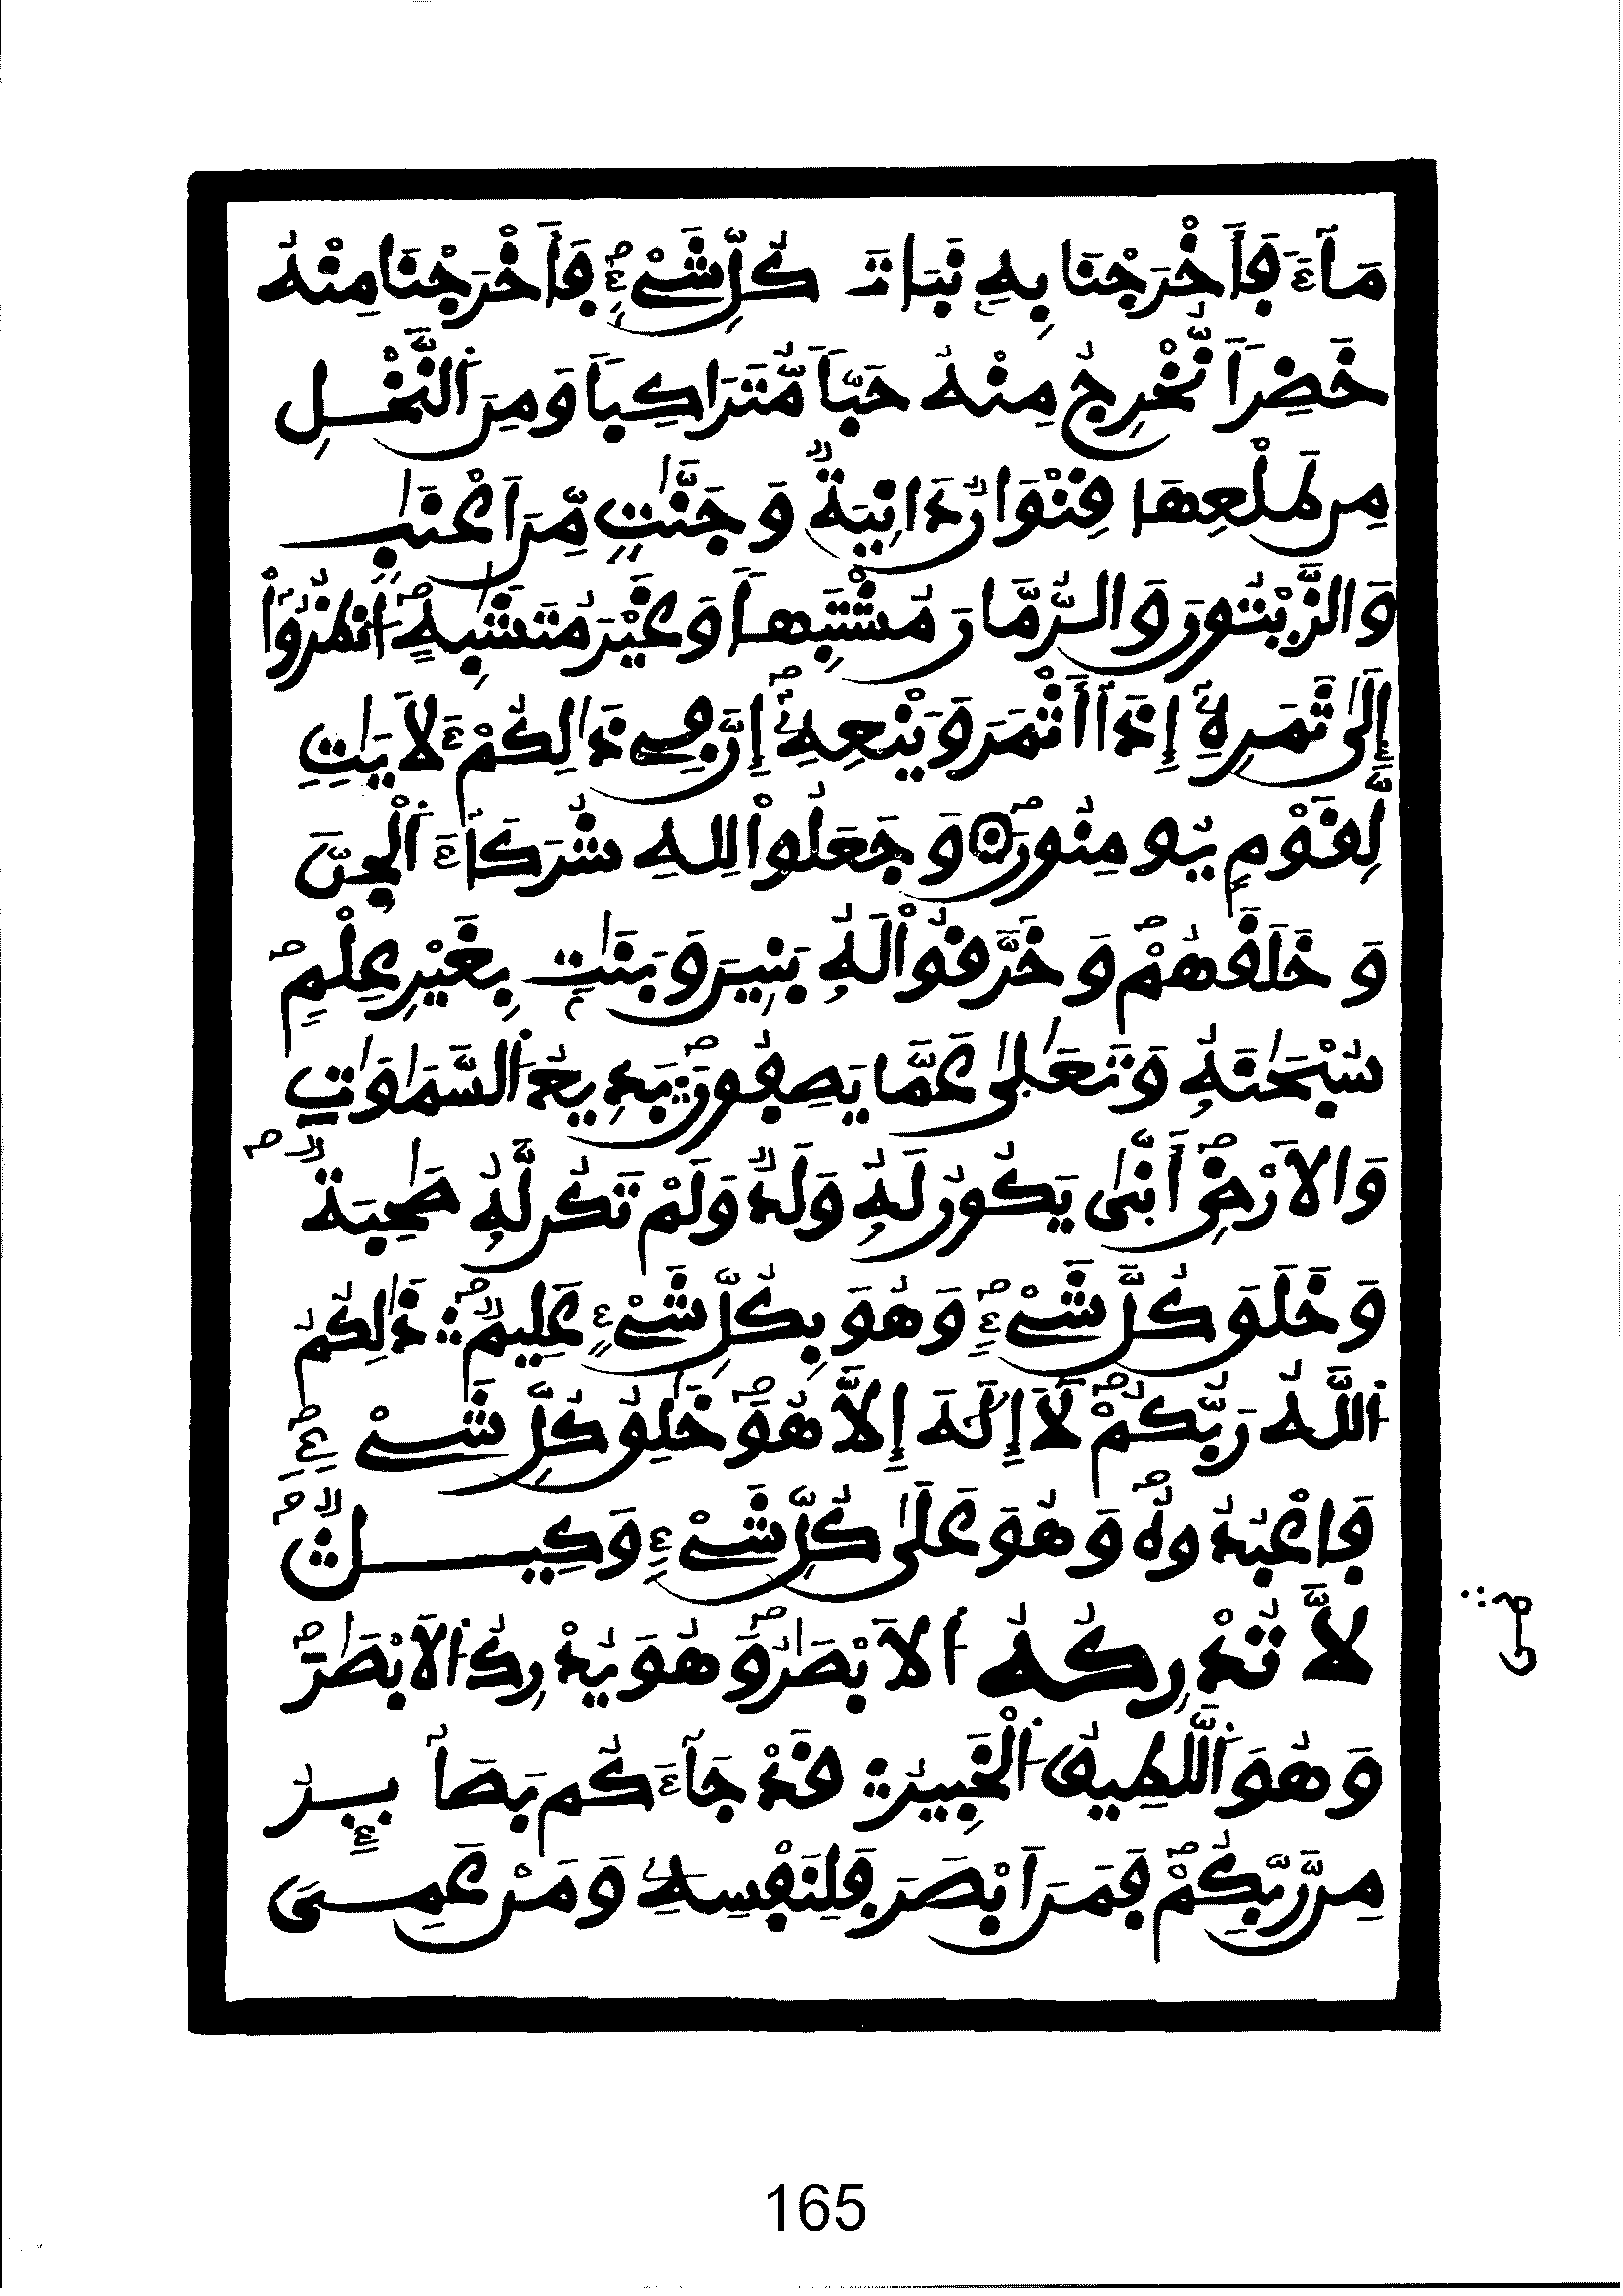 مَآءً فَأَخْرَجْنَا بِهِۦ نَبَاتَ كُلِّ شَيْءٍ فَأَخْرَجْنَا مِنْهُ
خَضِراً نُّخْرِجُ مِنْهُ حَبّاً مُّتَرَاكِباً وَمِنَ اَ۬لنَّخْلِ
مِن طَلْعِهَا قِنْوَانٌ دَانِيَةٌ وَجَنَّٰتٍ مِّنَ اَعْنَٰبٍ
وَالزَّيْتُونَ وَالرُّمَّانَ مُشْتَبِهاً وَغَيْرَ مُتَشَٰبِهٍۖ اَ۟نظُرُوٓاْ
إِلَىٰ ثَمَرِهِۦٓ إِذَآ أَثْمَرَ وَيَنْعِهِۦٓۖ إِنَّ فِي ذَٰلِكُمْ ءَلَايَٰتٍ
لِّقَوْمٍ يُومِنُونَۖ وَجَعَلُواْ لِلهِ شُرَكَآءَ اَ۬لْجِنَّ
وَخَلَقَهُمْۖ وَخَرَّقُواْ لَهُۥ بَنِينَ وَبَنَٰتٍۢ بِغَيْرِ عِلْمٍۖ
سُبْحَٰنَهُۥ وَتَعَٰلَىٰ عَمَّا يَصِفُونَۖ بَدِيعُ اُ۬لسَّمَٰوَٰتِ
وَالَارْضِۖ أَنَّىٰ يَكُونُ لَهُۥ وَلَدٌ وَلَمْ تَكُن لَّهُۥ صَٰحِبَةٌۖ
وَخَلَقَ كُلَّ شَيْءٍۖ وَهُوَ بِكُلِّ شَيْءٍ عَلِيمٌۖ ذَٰلِكُمُ
اُ۬للَّهُ رَبُّكُمْۖ لَآ إِلَٰهَ إِلَّا هُوَۖ خَٰلِقُ كُلِّ شَيْءٍۖ
فَاعْبُدُوهُۖ وَهُوَ عَلَىٰ كُلِّ شَيْءٍ وَكِيلٌۖ
لَّا تُدْرِكُهُ اُ۬لَابْصَٰرُۖ وَهُوَ يُدْرِكُ اُ۬لَابْصَٰرَۖ
وَهُوَ اَ۬للَّطِيفُ اُ۬لْخَبِيرُۖ قَدْ جَآءَكُم بَصَآئِرُ
مِن رَّبِّكُمْۖ فَمَنَ اَبْصَرَ فَلِنَفْسِهِۦ وَمَنْ عَمِيَ
165